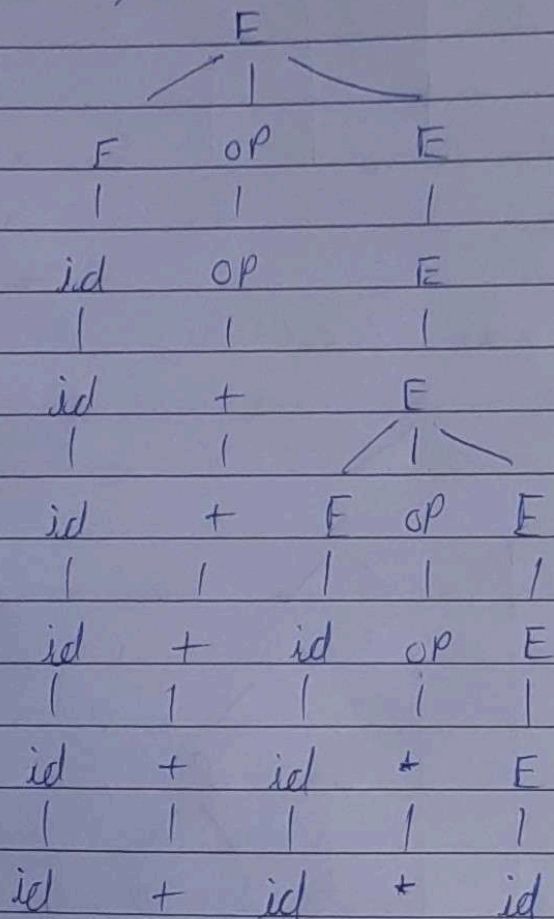 E
E OP E
id OP E
id + E
id + E OP E
id + id OP E
id + id * E
id + id * id